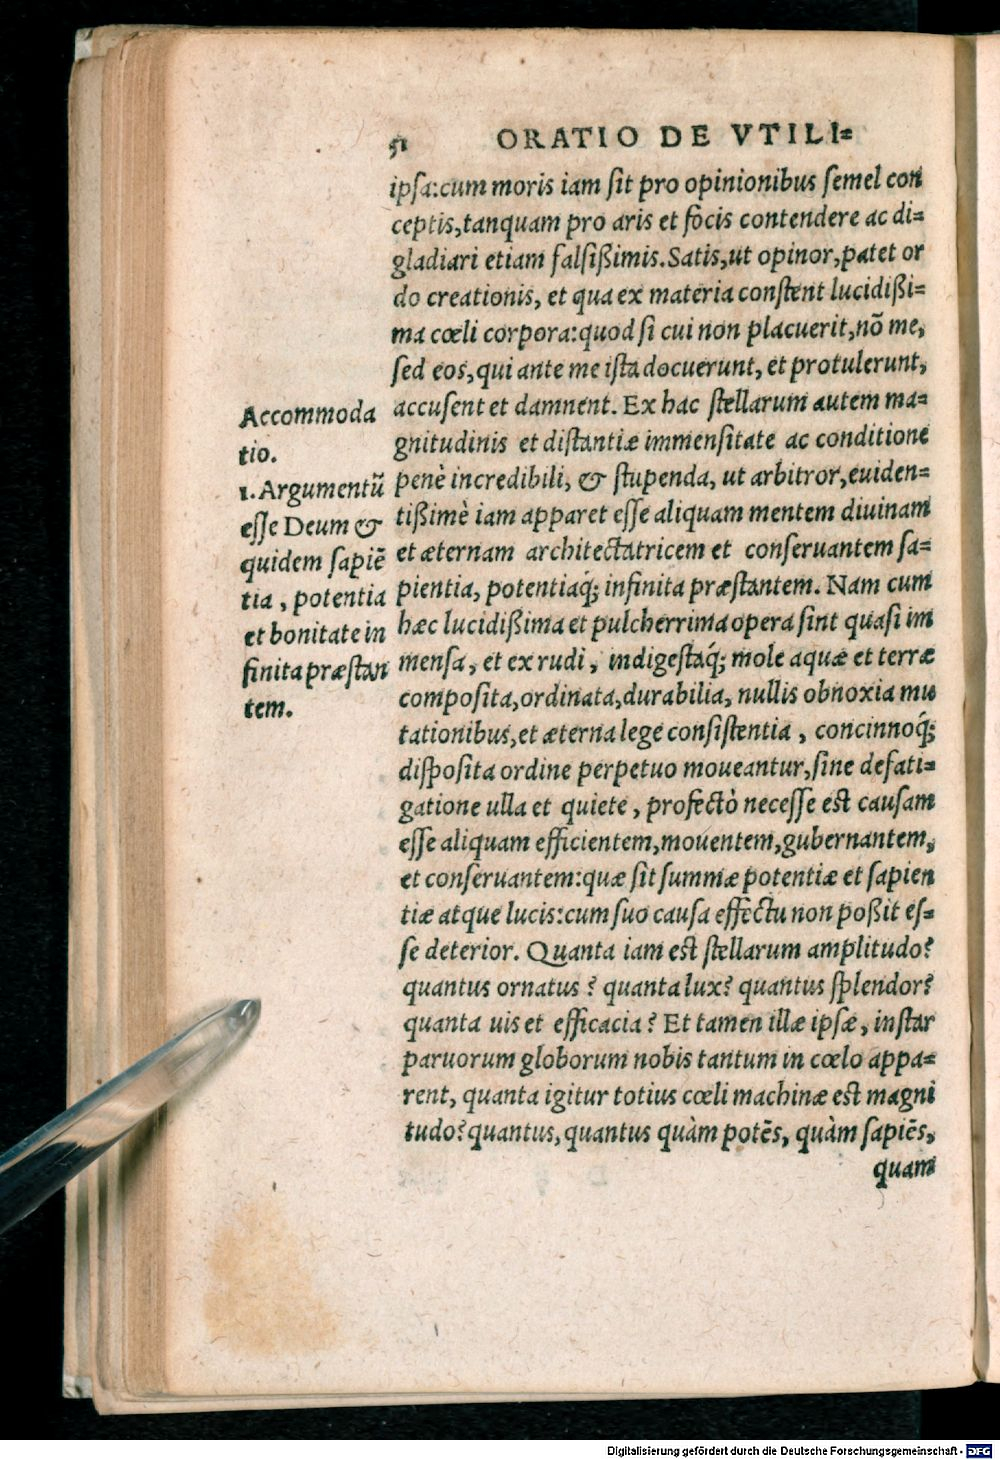 51 ORATIO DE VTILI=
ipsa:cum moris iam sit pro opinionibus semel con
ceptis,tanquam pro aris et focis contendere ac di=
gladiari etiam falsißimis.Satis,ut opinor,patet or
do creationis, et qua ex materia constent lucidißi=
ma cœli corpora:quod si cui non placuerit,nõ me,
sed eos,qui ante me ista docuerunt, et protulerunt,
accusent et damnent. Ex hac stellarum autem ma=
gnitudinis et distantiæ immensitate ac conditione
penè incredibili, & stupenda, ut arbitror,euiden=
tißimè iam apparet esse aliquam mentem diuinam
et æternam architectatricem et conseruantem sa=
pientia, potentiaq́; infinita præstantem. Nam cum
hæc lucidißima et pulcherrima opera sint quasi im
mensa, et ex rudi, indigestaq́; mole aquæ et terræ
composita,ordinata,durabilia, nullis obnoxia mu
tationibus,et æterna lege consistentia, concinnoq́;
disposita ordine perpetuo moueantur,sine defati=
gatione ulla et quiete, profectò necesse est causam
esse aliquam efficientem,mouentem,gubernantem,
et conseruantem:quæ sit summæ potentiæ et sapien
tiæ atque lucis:cum suo causa effectu non poßit es=
se deterior. Quanta iam est stellarum amplitudo?
quantus ornatus? quanta lux? quantus splendor?
quanta uis et efficacia? Et tamen illæ ipsæ, instar
paruorum globorum nobis tantum in cœlo appa=
rent, quanta igitur totius cœli machinæ est magni
tudo?quantus,quantus quàm potẽs, quàm sapiẽs,
quam
Accommoda
tio.
1.Argumentũ
esse Deum &
quidem sapiẽ
tia, potentia
et bonitate in
finita præstan
tem.
Digitalisierung gefördert durch die Deutsche Forschungsgemeinschaft - DFG